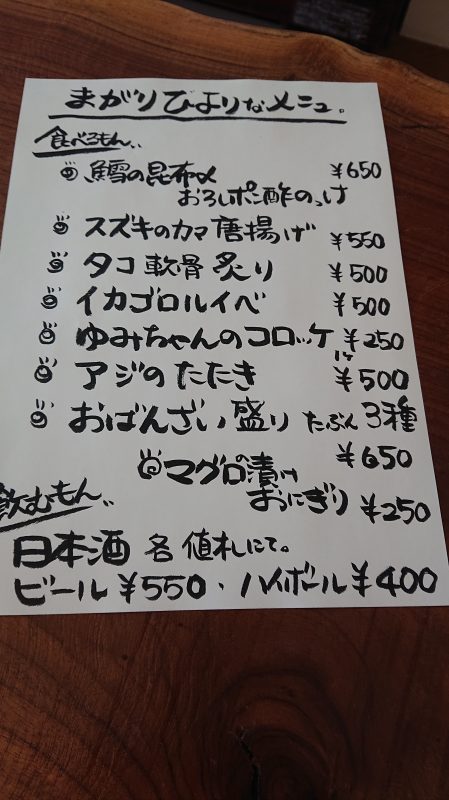 まがりびよりなメニュ。
食べるもん..
鱈の昆布〆 ¥650
おろしポン酢のっけ
スズキのカマ唐揚げ ¥550
タコ軟骨炙り ¥500
イカゴロルイベ ¥500
ゆみちゃんのコロッケ 1ケ ¥250
アジのたたき ¥500
おばんざい盛り たぶん3種
¥650
マグロの漬け
おにぎり ¥250
飲むもん..
日本酒 各値札にて。
ビール¥550・ハイボール¥400